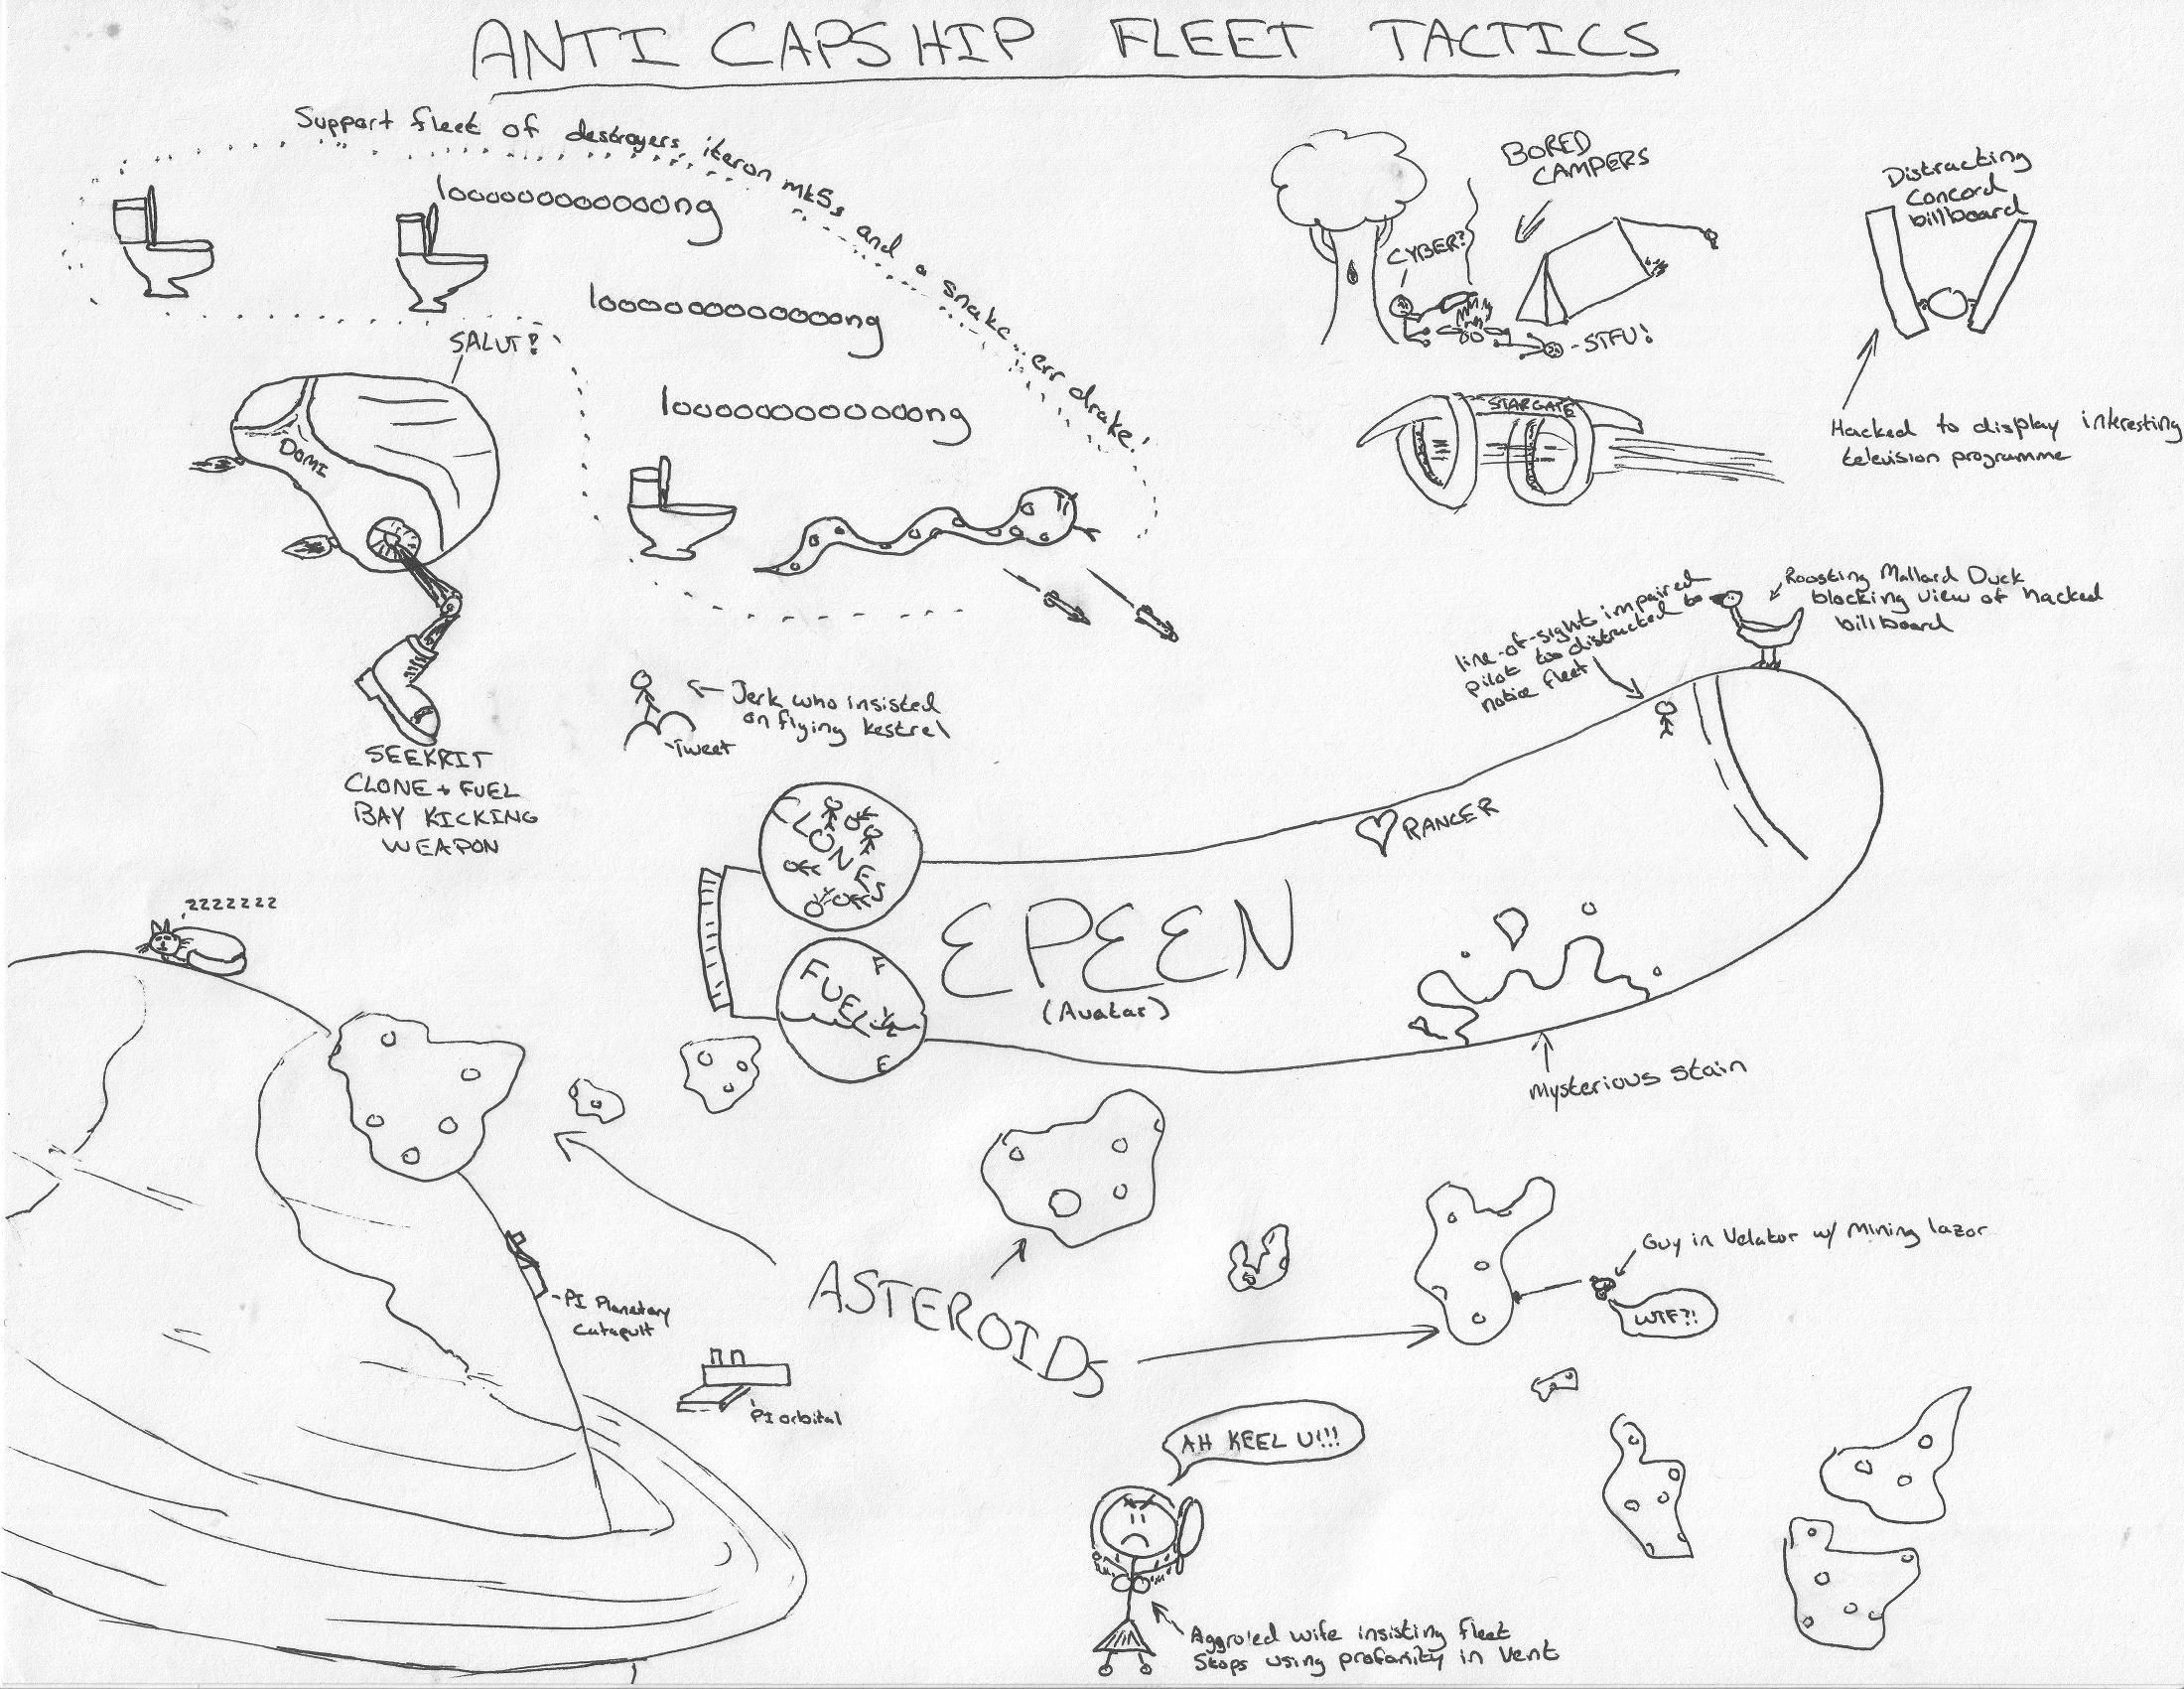 ANTI CAPSHIP FLEET TACTICS
Support fleet of destroyers, iteron mk5s and a snake..err drake!
looooooooooooong
looooooooooooong
looooooooooooong
SALUT!
DOMI
SEEKRIT
CLONE + FUEL
BAY KICKING
WEAPON
Jerk who insisted
on flying kestrel
-Tweet
BORED
CAMPERS
CYBER?
-STFU!
STARGATE
Distracting
Concord
billboard
Hacked to display interesting
television programme
line-of-sight impaired
pilot too distracted to
notice fleet
Roosting Mallard Duck
blocking view of hacked
billboard
CLONES
FUEL
F
½
E
EPEEN
(Avatar)
RANCER
Mysterious stain
zzzzzzz
ASTEROIDS
-PI Planetary
Catapult
PI orbital
Guy in Velator w/ Mining lazor
WTF?!
AH KEEL U!!!
Aggro'ed wife insisting fleet
Stops using profanity in Vent